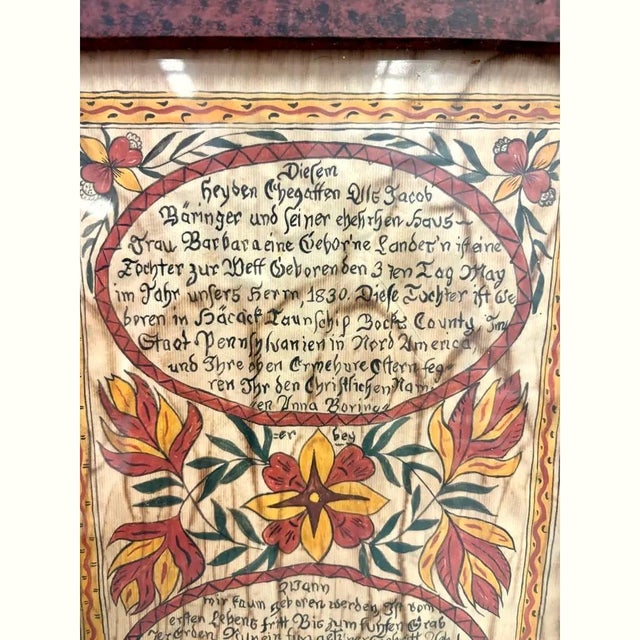 Diesem
heyden Ehegatten Als Jacob
Bäringer und seiner ehehrhen Haus-
Frau Barbara eine Gebor'ne Lander'n ist eine
Tochter zur Welt Geboren den 3 ten Tag May
im Jahr unsers Herrn, 1830. Diese Tochter ist Ge
boren in Häcack Taunschip Bocks County Im
Staat Pennsylvanien in Nord America,
und Ihre oben Ermehnre Eltern
ren Ihr den Christlichen Nam-
en Anna Boring
=er bey
Wann
mir kaum geboren werden Ist vom
ersten Lebens tritt Bis zum kuhlen Grab
der Erden